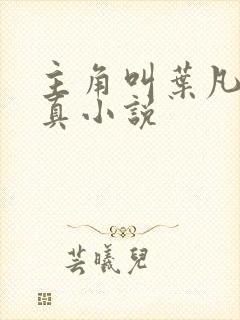 主角叫葉凡
真小說
芸曦兒